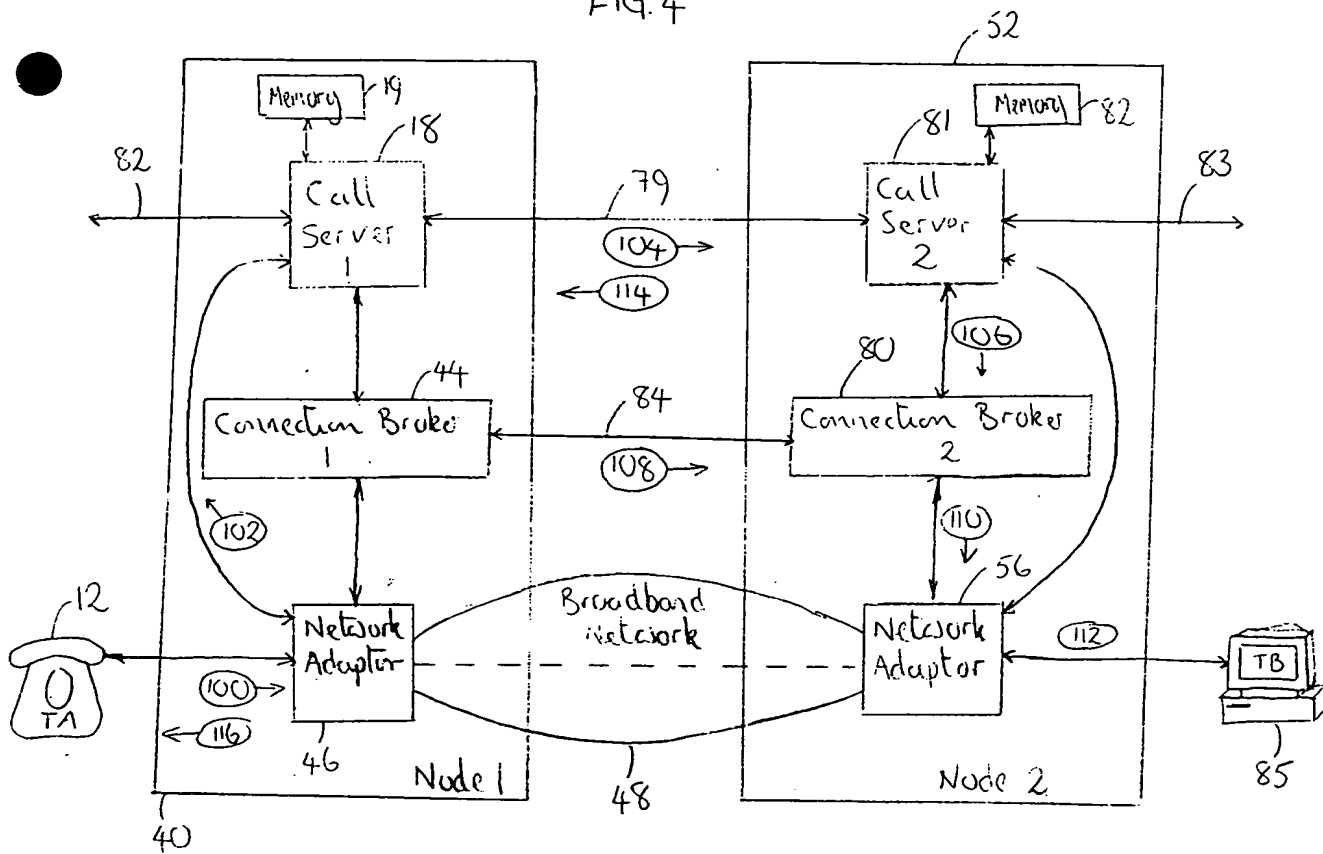 FIG. 4
52
Memory
19
Memory
82
18
81
82
Call
Server
1
79
Call
Server
2
83
104
114
106
44
80
Connection Broker
1
84
Connection Broker
2
108
102
110
56
12
Network
Adaptor
Broadband
Network
Network
Adaptor
112
TB
TA
100
116
46
Node 1
48
Node 2
85
40